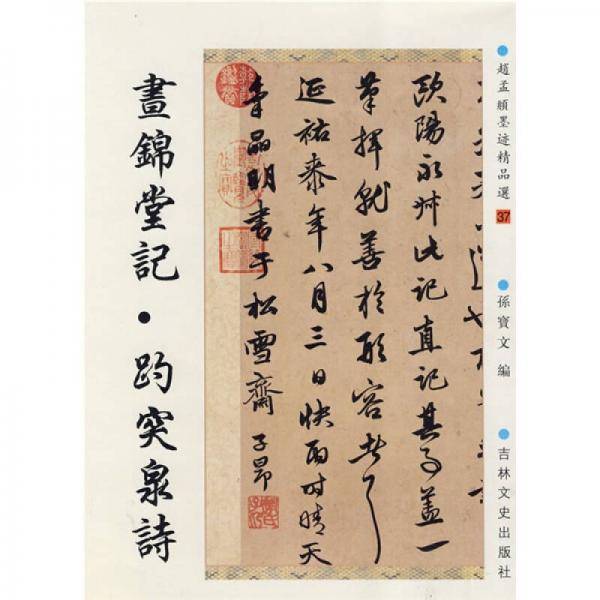 趙孟頫墨迹精品選 37
孫寶文 編
吉林文史出版社
歐陽永叔此記直記其事蓋一
筆揮就善於形容者
延祐年八月三日快雨時晴天
氣晶明書于松雪齋 子昂
晝錦堂記・趵突泉詩